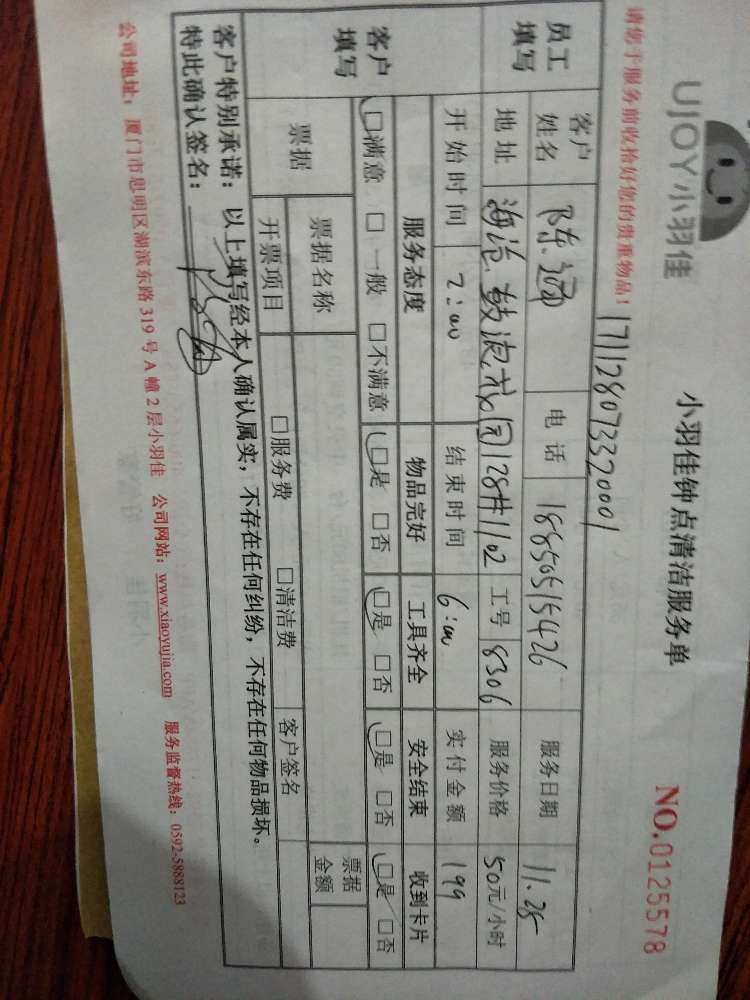 UJOY小羽佳
小羽佳钟点清洁服务单
NO.0125578
请您于服务前收拾好您的贵重物品！
171128073320001
员工填写
客户姓名 陈 电话 18850515426 服务日期 11.28
地址 海沧鼓浪花园128#1102 工号 8306 服务价格 50元/小时
开始时间 2:00 结束时间 6:00 实付金额 199
客户填写
服务态度 物品完好 工具齐全 安全结束 收到卡片
□满意 □一般 □不满意 □是 □否 □是 □否 □是 □否 □是 □否
票据 票据名称 票据金额
开票项目 □服务费 □清洁费 客户签名
客户特别承诺：以上填写经本人确认属实，不存在任何纠纷，不存在任何物品损坏。
特此确认签名：
公司地址：厦门市思明区湖滨东路319号A幢2层小羽佳 公司网站：www.xiaoyujia.com 服务监督热线：0592-5888123